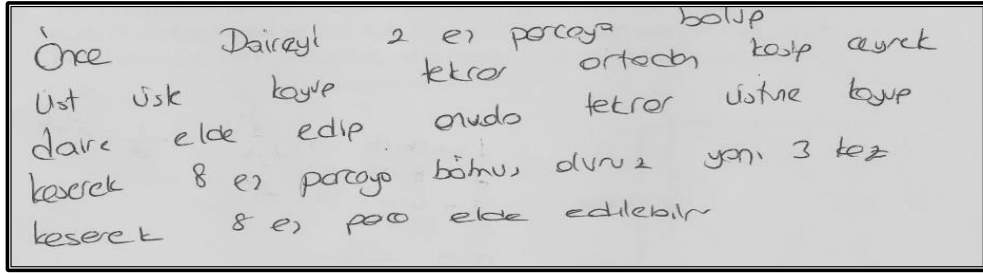 Önce Daireyi 2 eş parçaya bölüp
üst üsk koyup tekrar ortadan kesip çeyrek
daire elde edip onuda tekrar üstüne koyup
keserek 8 eş parçaya bölmüş oluruz yani 3 kez
keserek 8 eş parça elde edilebilir